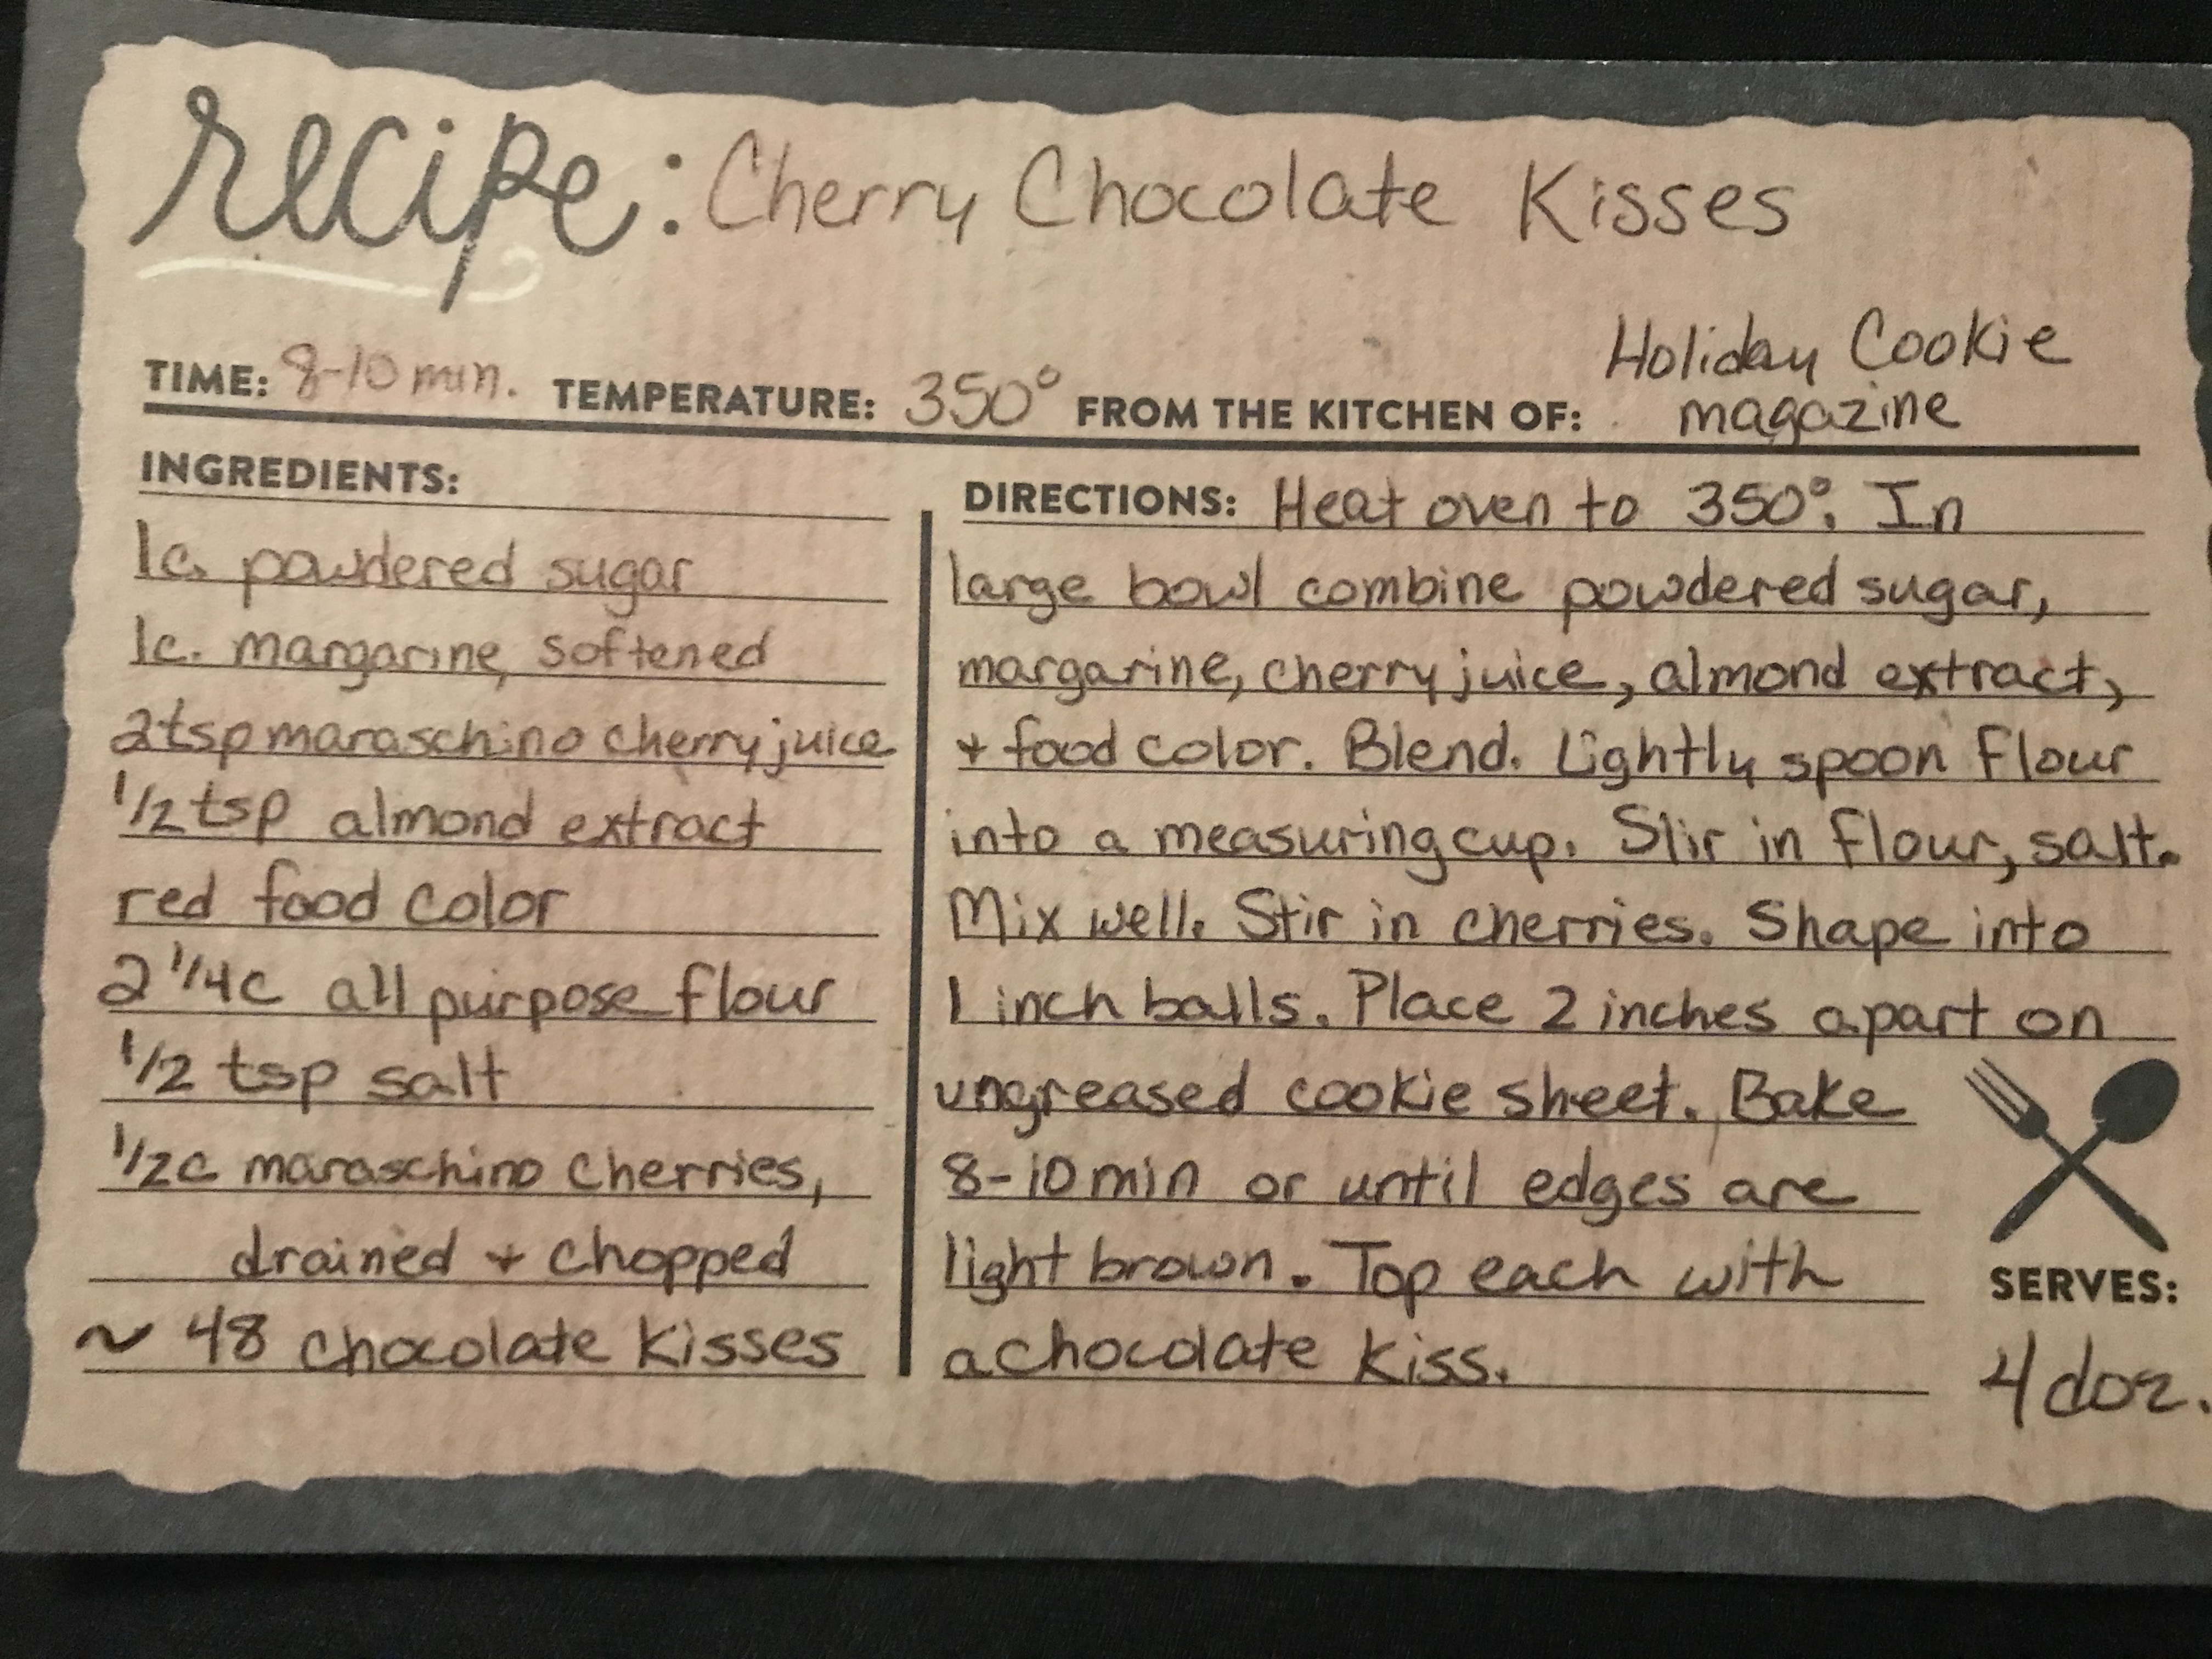 recipe: Cherry Chocolate Kisses
TIME: 8-10 min. TEMPERATURE: 350° FROM THE KITCHEN OF: Holiday Cookie
magazine
INGREDIENTS:
1c. powdered sugar
1c. margarine, softened
2 tsp maraschino cherry juice
1/2 tsp almond extract
red food color
2 1/4c all purpose flour
1/2 tsp salt
1/2c maraschino cherries,
drained + chopped
~ 48 chocolate kisses
DIRECTIONS: Heat oven to 350°. In
large bowl combine powdered sugar,
margarine, cherry juice, almond extract,
+ food color. Blend. Lightly spoon flour
into a measuring cup. Stir in flour, salt.
Mix well. Stir in cherries. Shape into
1 inch balls. Place 2 inches apart on
ungreased cookie sheet. Bake
8-10 min or until edges are
light brown. Top each with
a chocolate kiss.
SERVES:
4 doz.